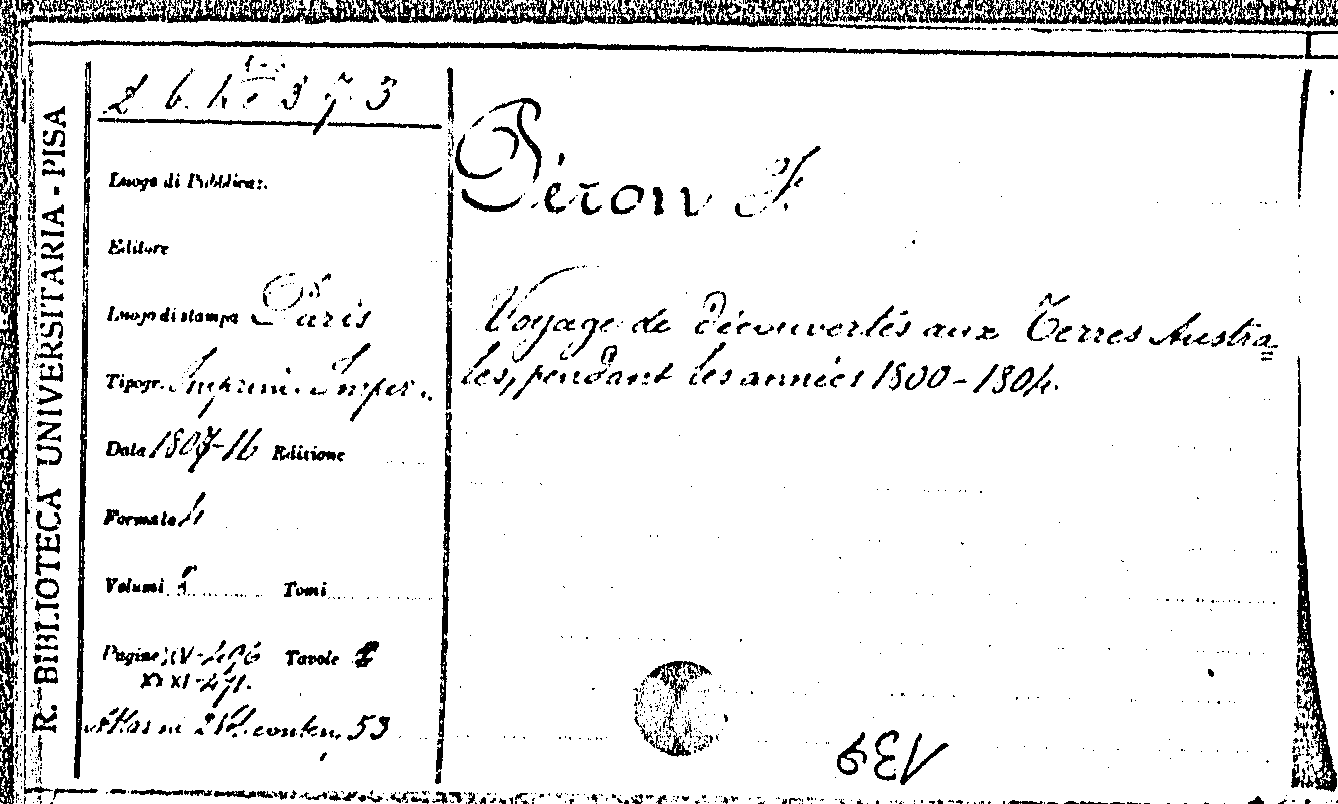 R. BIBLIOTECA UNIVERSITARIA - PISA
Luogo di Pubblicaz.
Editore
Luogo di stampa Paris
Tipogr. Imprim. Impér.
Data 1807-16 Edizione
Formato 4
Volumi Tomi
Pagine XV-496 Tavole
XXXI-471.
Atlas in conten. 53
Péron F.
Voyage de découvertes aux Terres Austra=
les, pendant les années 1800-1804.
139